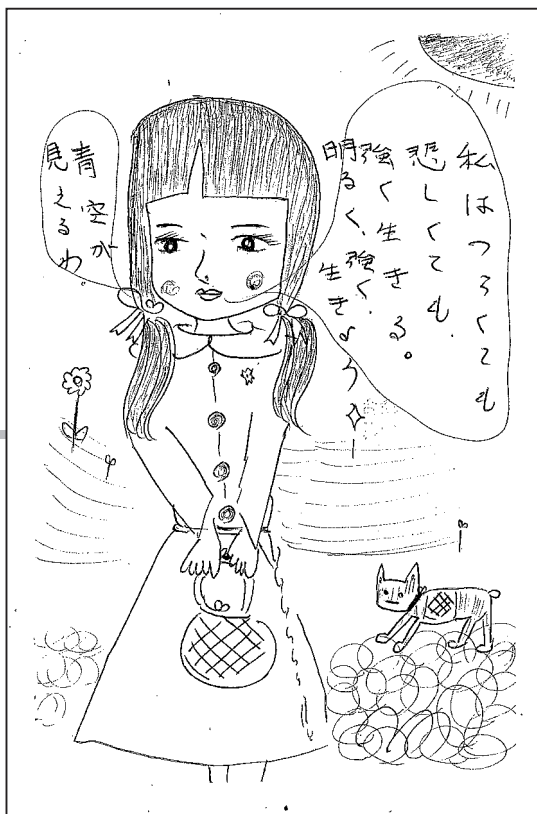 私はつらくても
悲しくても、
強く生きる。
明るく、強く、
生きよう
青空が
見えるわ。